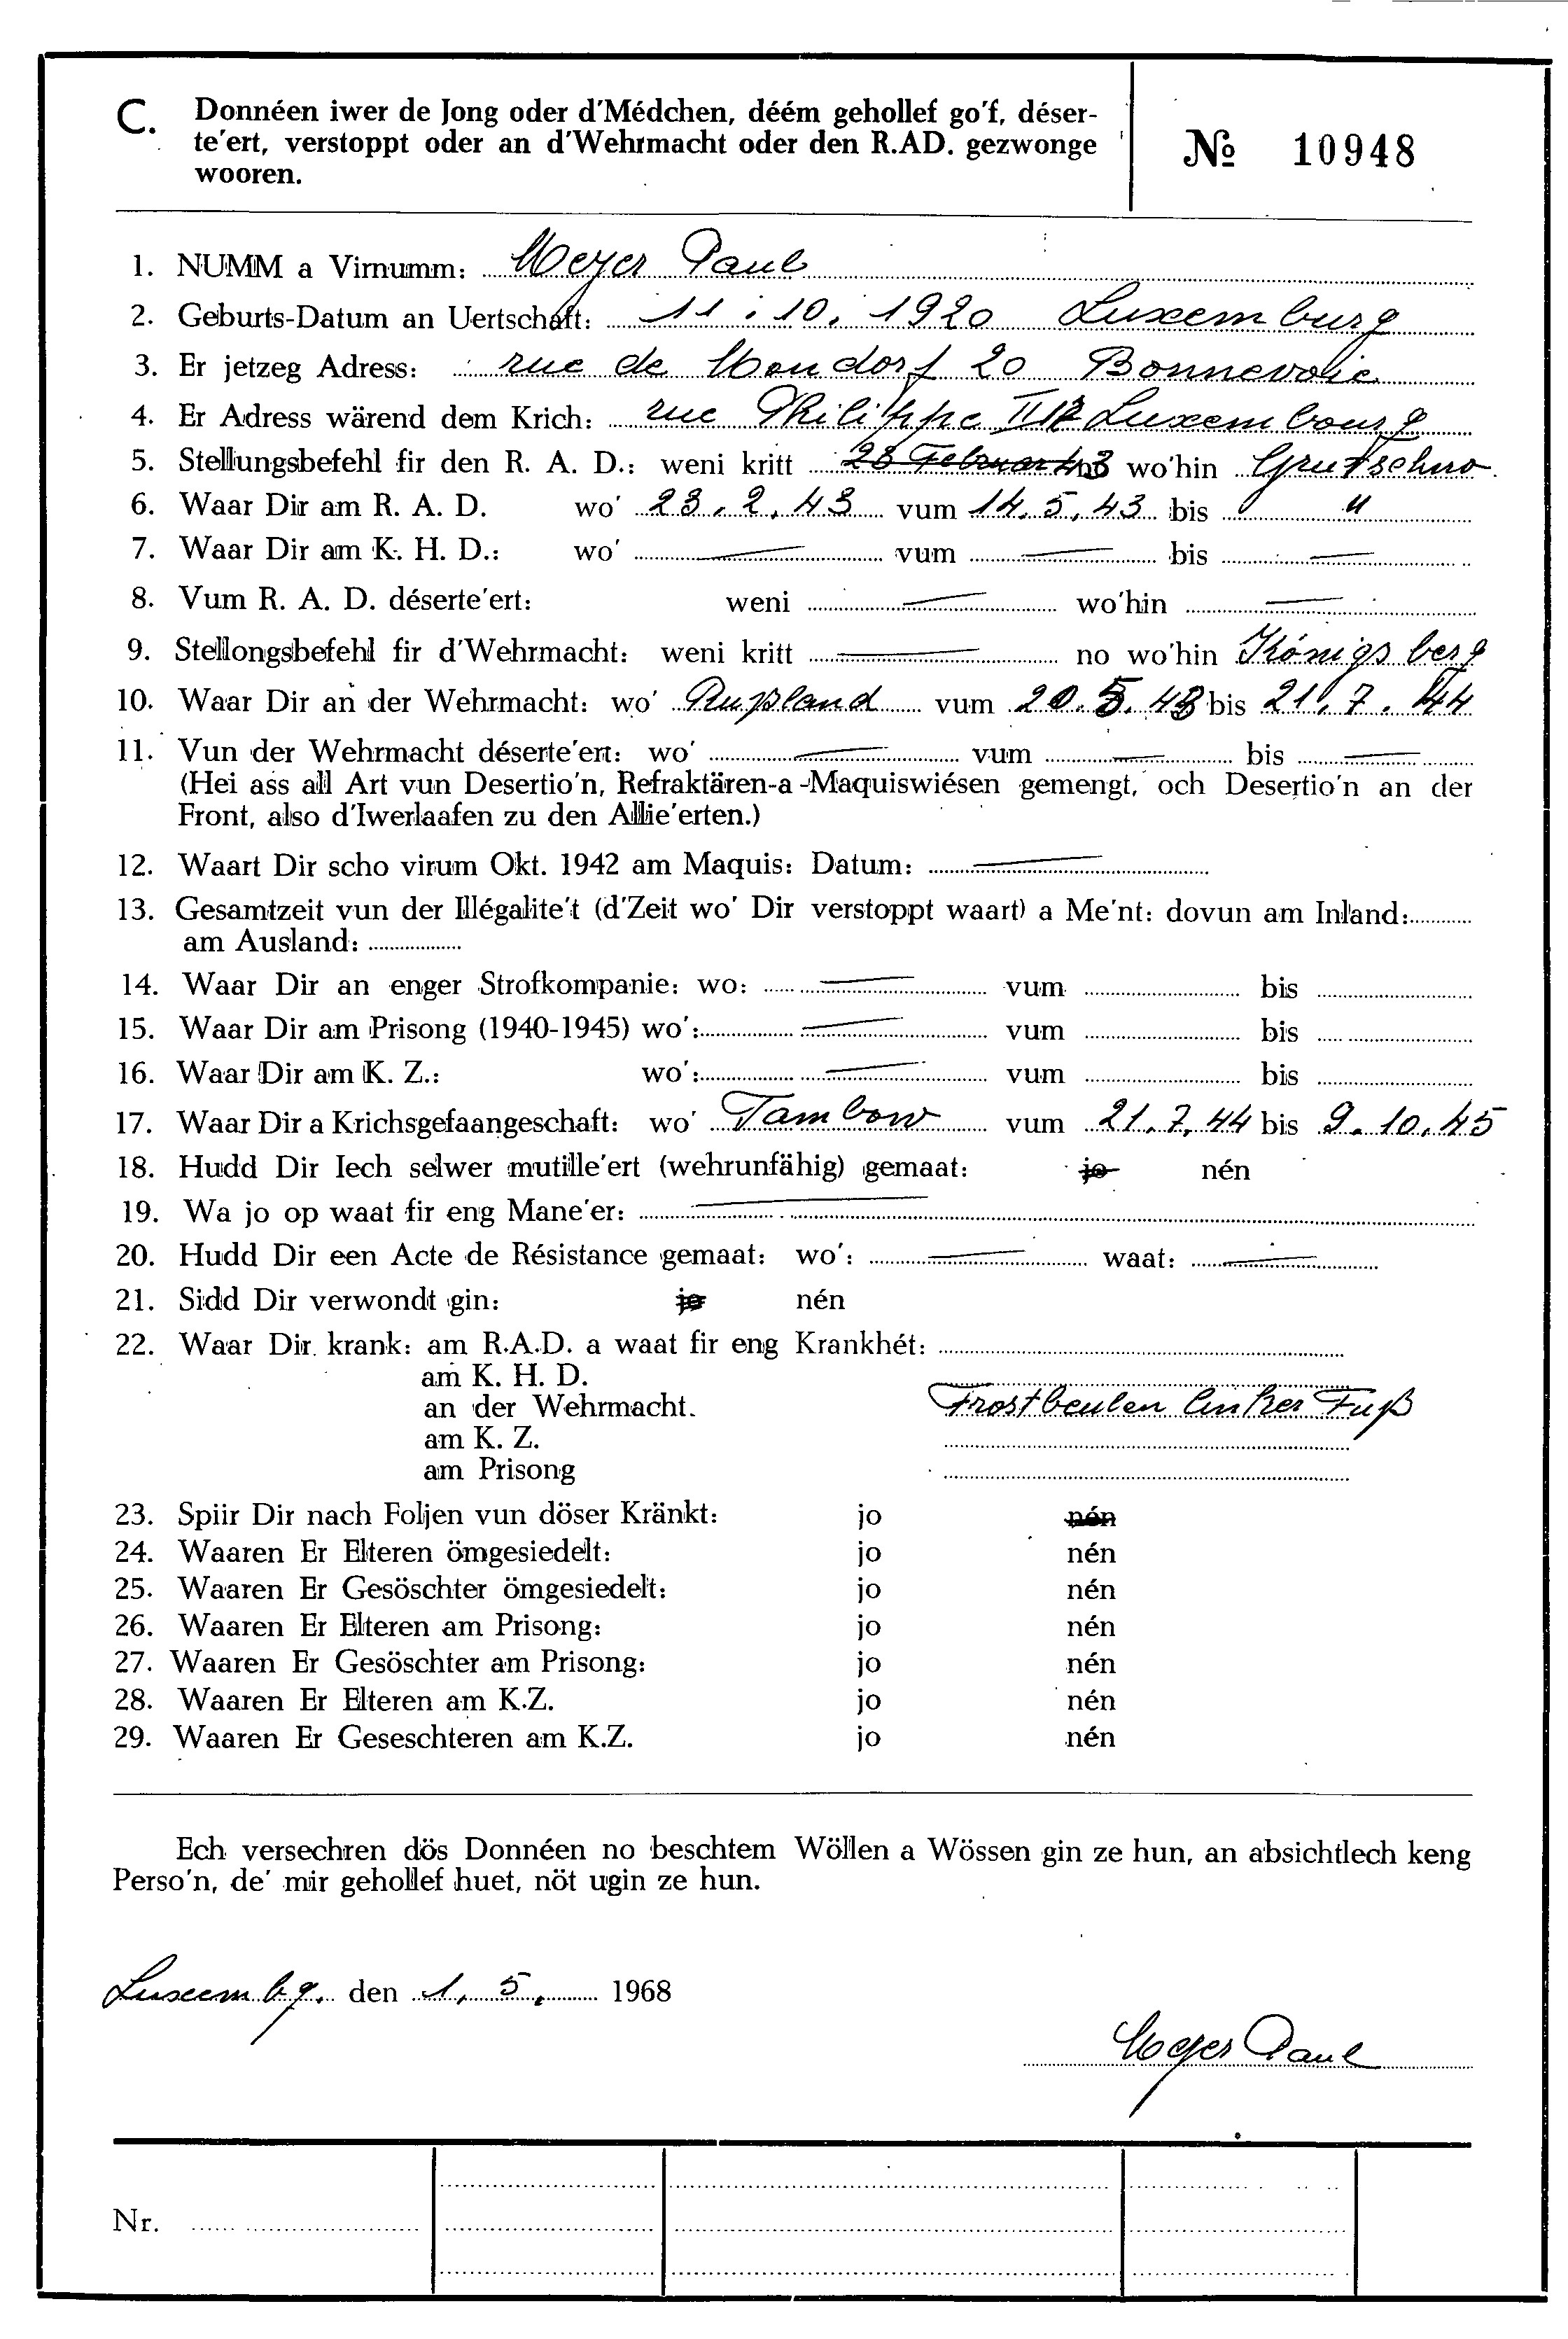 C. Donnéen iwer de Jong oder d'Médchen, déém gehollef go'f, déser-
te'ert, verstoppt oder an d'Wehrmacht oder den R.AD. gezwonge
wooren.
№ 10948
1. NUMM a Virnumm: Meyer Paul
2. Geburts-Datum an Uertschaft: 11. 10. 1920 Luxemburg
3. Er jetzeg Adress: rue de Mondorf 20 Bonnevoie
4. Er Adress wärend dem Krich: rue Philippe II 12 Luxembourg
5. Stellungsbefehl fir den R. A. D.: weni kritt 23 Februar 43 no wo'hin
6. Waar Dir am R. A. D. wo' 23. 2. 43 vum 14. 5. 43 bis "
7. Waar Dir am K. H. D.: wo' — vum — bis —
8. Vum R. A. D. déserte'ert: weni — wo'hin —
9. Stellongsbefehl fir d'Wehrmacht: weni kritt — no wo'hin Königsberg
10. Waar Dir an der Wehrmacht: wo' Rußland vum 20. 5. 43 bis 21. 7. 44
11. Vun der Wehrmacht déserte'ert: wo' — vum — bis —
(Hei ass all Art vun Desertio'n, Refraktären-a-Maquiswiésen gemengt, och Desertio'n an der
Front, also d'Iwerlaafen zu den Allie'erten.)
12. Waart Dir scho virum Okt. 1942 am Maquis: Datum: —
13. Gesamtzeit vun der Illégalite't (d'Zeit wo' Dir verstoppt waart) a Me'nt: dovun am Inland:
am Ausland:
14. Waar Dir an enger Strofkompanie: wo: — vum bis
15. Waar Dir am Prisong (1940-1945) wo': — vum bis
16. Waar Dir am K. Z.: wo': — vum bis
17. Waar Dir a Krichsgefaangeschaft: wo' Tambow vum 21. 7. 44 bis 9. 10. 45
18. Hudd Dir Iech selwer mutille'ert (wehrunfähig) gemaat: jo nén
19. Wa jo op waat fir eng Mane'er: —
20. Hudd Dir een Acte de Résistance gemaat: wo': — waat: —
21. Sidd Dir verwondt gin: jo nén
22. Waar Dir krank: am R.A.D. a waat fir eng Krankhét:
am K. H. D.
an der Wehrmacht. Frostbeulen linker Fuß
am K. Z.
am Prisong
23. Spiir Dir nach Foljen vun döser Kränkt: jo nén
24. Waaren Er Elteren ömgesiedelt: jo nén
25. Waaren Er Gesöschter ömgesiedelt: jo nén
26. Waaren Er Elteren am Prisong: jo nén
27. Waaren Er Gesöschter am Prisong: jo nén
28. Waaren Er Elteren am K.Z. jo nén
29. Waaren Er Geseschteren am K.Z. jo nén
Ech versechren dös Donnéen no beschtem Wöllen a Wössen gin ze hun, an absichtlech keng
Perso'n, de' mir gehollef huet, nöt ugin ze hun.
Luxembg. den 1. 5. 1968
Meyer Paul
Nr.